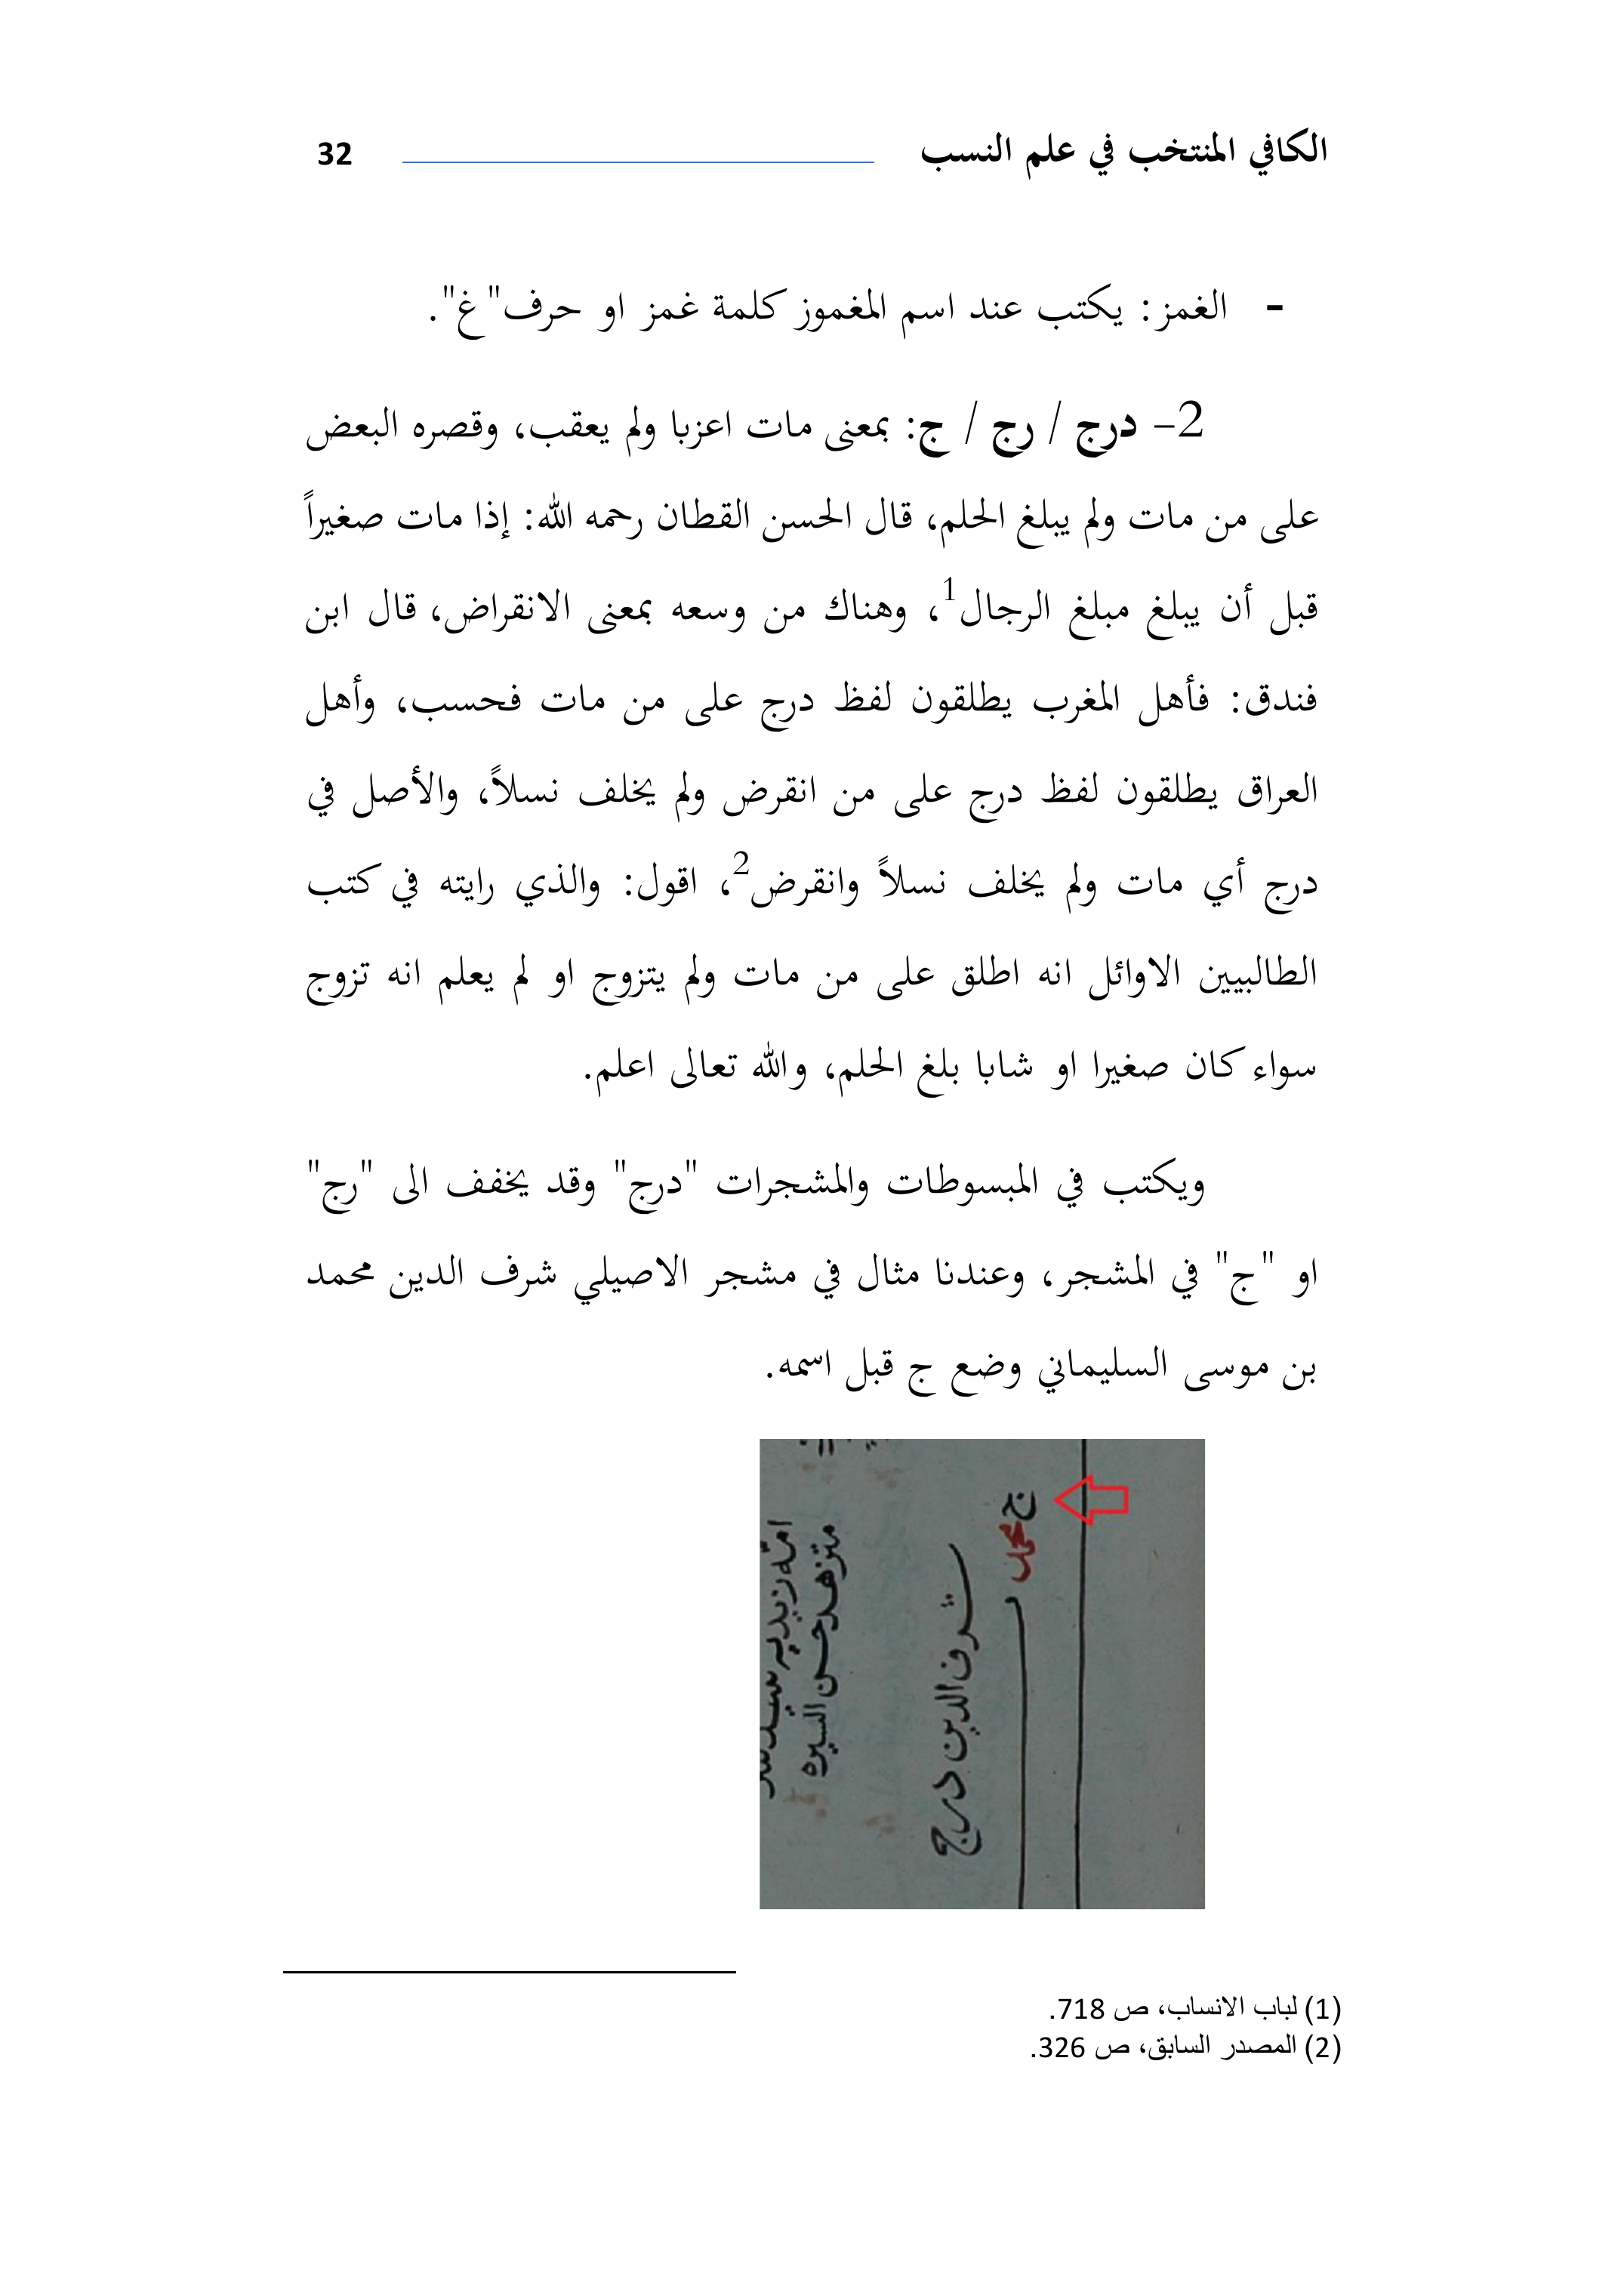 الكافي المنتخب في علم النسب 32
- الغمز: يكتب عند اسم المغموز كلمة غمز او حرف"غ".
2- درج / رج / ج: بمعنى مات اعزبا ولم يعقب، وقصره البعض
على من مات ولم يبلغ الحلم، قال الحسن القطان رحمه الله: إذا مات صغيراً
قبل أن يبلغ مبلغ الرجال1، وهناك من وسعه بمعنى الانقراض، قال ابن
فندق: فأهل المغرب يطلقون لفظ درج على من مات فحسب، وأهل
العراق يطلقون لفظ درج على من انقرض ولم يخلف نسلاً، والأصل في
درج أي مات ولم يخلف نسلاً وانقرض2، اقول: والذي رايته في كتب
الطالبيين الاوائل انه اطلق على من مات ولم يتزوج او لم يعلم انه تزوج
سواء كان صغيرا او شابا بلغ الحلم، والله تعالى اعلم.
ويكتب في المبسوطات والمشجرات "درج" وقد يخفف الى "رج"
او "ج" في المشجر، وعندنا مثال في مشجر الاصيلي شرف الدين محمد
بن موسى السليماني وضع ج قبل اسمه.
ج محمد
شرف الدين درج
متزهد حسن السيره
امه زيديه
(1) لباب الانساب، ص 718.
(2) المصدر السابق، ص 326.